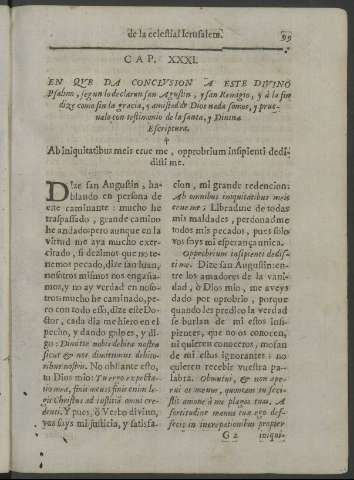 de la celestial Ierusalem.
99
CAP. XXXI.
EN QVE DA CONCLVSION A ESTE DIVINO
Psalmo, segun lo declaran san Agustin, y san Remigio, y à la fin
dize como sin la gracia, y amistad de Dios nada somos, y prue-
valo con testimonio de la santa, y Divina
Escriptura.
Ab iniquitatibus meis erue me, opprobrium insipienti dedi-
disti me.
DIze san Augustin, ha-
blando en persona de
este caminante: mucho he
traspassado, grande camino
he andado: pero aunque en la
virtud me aya mucho exer-
citado, si dezimos que no te-
nemos pecado, dize san Iuan,
nosotros mismos nos engaña-
mos, y no ay verdad en noso-
tros: mucho he caminado, pe-
ro con todo esso, dize este Do-
ctor, cada dia me hiero en el
pecho, y dando golpes, y di-
go: Dimitte nobis debita nostra
sicut & nos dimittimus debito-
ribus nostris. No obstante esto,
tu Dios mio: Tu ergo expecta-
tio mea, finis meus: finis enim le-
gis Christus ad iustitiã omni cre-
denti. Y pues, ò Verbo divino,
vos soys mi justicia, y satisfa-
cion, mi grande redencion:
Ab omnibus iniquitatibus meis
erue me: Libradme de todas
mis maldades, perdonadme
todos mis pecados, pues solo
vos soys mi esperança unica.
Opprobrium insipienti dedis-
ti me. Dize San Agustin: en-
tre los amadores de la vani-
dad, ò Dios mio, me aveys
dado por oprobio, porque
quando les predico la verdad
se burlan de mi estos insi-
pientes, que no os conocen,
ni quieren conoceros, mofan
de mi estos ignorantes: no
quieren recebir vuestra pa-
labra. Obmutui, & non ape-
rui os meum, quoniam tu feci-
sti amove à me plagas tuas. A
fortitudine manus tuæ ego def-
feci in increpationibus propter
G 2
iniqui-